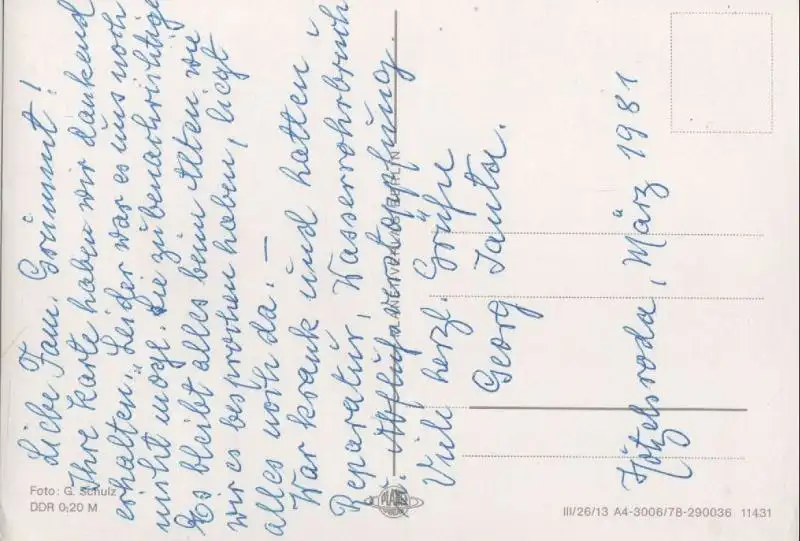 Liebe Fam. Grimmt!
Ihre Karte haben wir dankend
erhalten. Leider war es uns noch
nicht mögl. Sie zu benachrichtigen
Es bleibt alles beim Alten wie
wir es besprochen haben, liegt
alles noch da. —
War krank und hatten
Reparatur, Wasserrohrbruch
u. Abflußverstopfung.
Viele herzl. Grüße
Georg
Hötzelsroda, März 1981
PLANET
BERLIN
Foto: G. Schulz
DDR 0,20 M
III/26/13 A4-3006/78-290036 11431